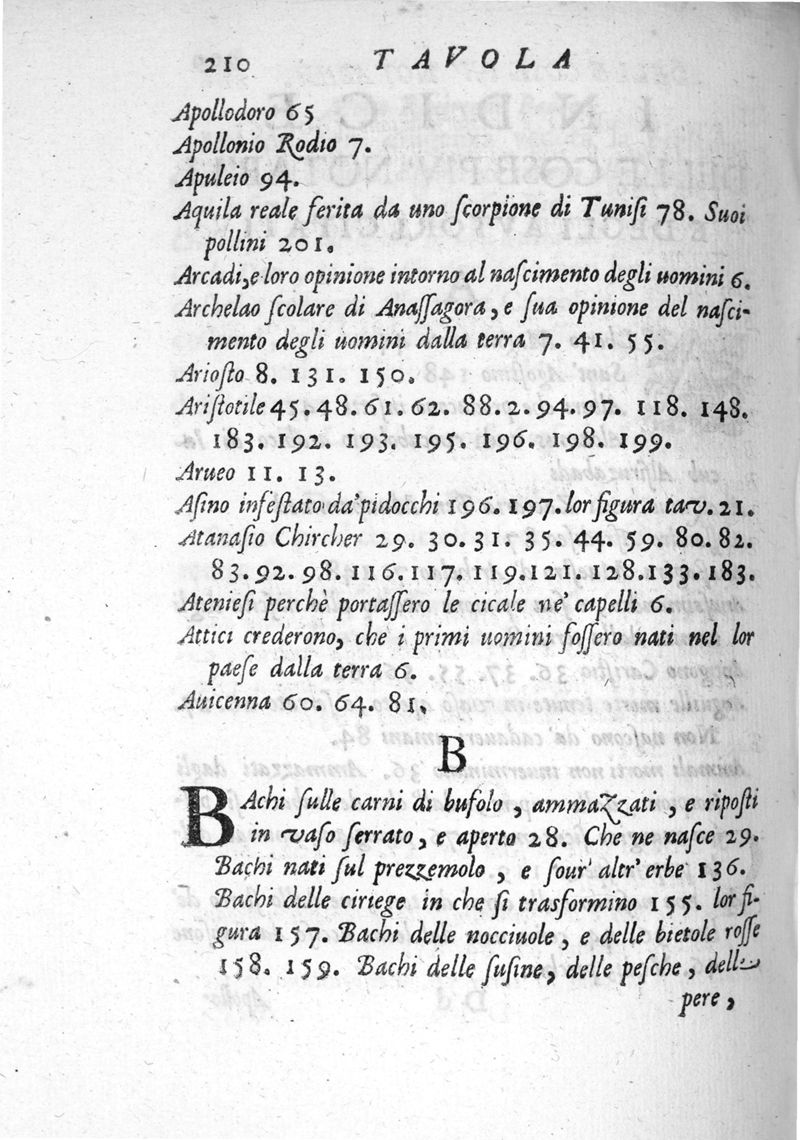 210 TAVOLA
Apollodoro 65
Apollonio Rodio 7.
Apuleio 94.
Aquila reale ferita da uno ſcorpione di Tuniſi 78. Suoi
pollini 201.
Arcadi, e loro opinione intorno al naſcimento degli uomini 6.
Archelao ſcolare di Anaſſagora, e ſua opinione del naſci-
mento degli uomini dalla terra 7. 41. 55.
Arioſto 8. 131. 150.
Ariſtotile 45. 48. 61. 62. 88. 2. 94. 97. 118. 148.
183. 192. 193. 195. 196. 198. 199.
Arueo 11. 13.
Aſino infeſtato da' pidocchi 196. 197. lor figura tav. 21.
Atanaſio Chircher 29. 30. 31. 35. 44. 59. 80. 82.
83. 92. 98. 116. 117. 119. 121. 128. 133. 183.
Atenieſi perchè portaſſero le cicale ne' capelli 6.
Attici crederono, che i primi uomini foſſero nati nel lor
paeſe dalla terra 6.
Auicenna 60. 64. 81.
B
BAchi ſulle carni di bufolo, ammazzati, e ripoſti
in vaſo ſerrato, e aperto 28. Che ne naſce 29.
Bachi nati ſul prezzemolo, e ſour' altr' erbe 136.
Bachi delle ciriege in che ſi trasformino 155. lor fi-
gura 157. Bachi delle nocciuole, e delle bietole roſſe
158. 159. Bachi delle ſuſine, delle peſche, delle
pere,